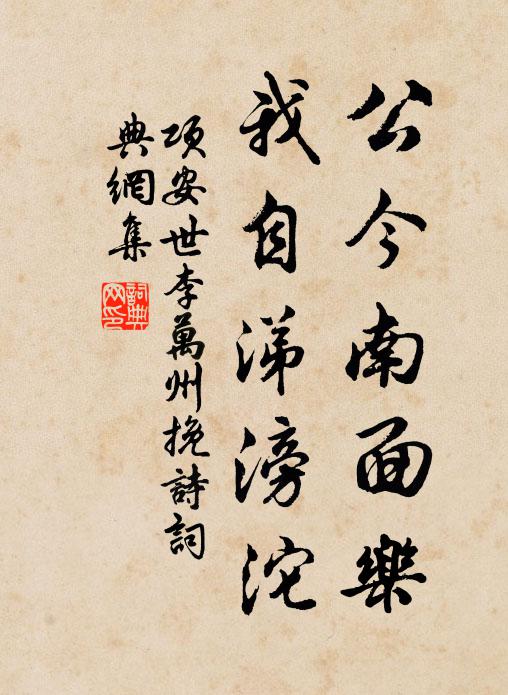 公今南面樂
我自涕滂沱
項安世李萬州挽詩詞
典網集
詞典
网印